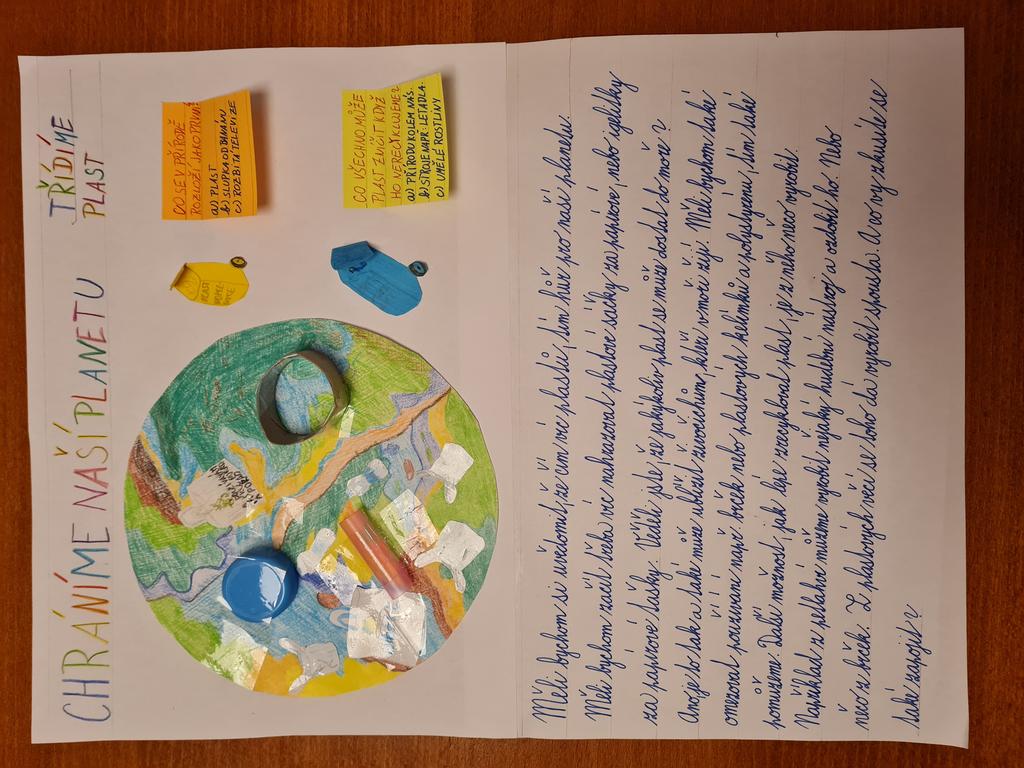 CHRÁNÍME NAŠÍ PLANETU
TŘÍDÍME
PLAST
CO SE V PŘÍRODĚ
ROZLOŽÍ JAKO PRVNÍ?
a) PLAST
b) SLUPKA OD BANÁNU
c) ROZBITÁ TELEVIZE
CO VŠECHNO MŮŽE
PLAST ZNIČIT KDYŽ
HO NERECIKLUJEME?
a) PŘÍRODU KOLEM NÁS.
b) STROJE NAPŘ: LETADLA.
c) UMĚLÉ ROSTLINY
PLAST
Měli bychom si uvědomit, že čím víc plastů, tím hůř pro naší planetu.
Měli bychom začít třeba víc nahrazovat plastové sáčky za papírové, nebo igelitky
za papírové tašky. Věděli jste, že jakýkoliv plast se může dostat do moře?
Ano je to tak a také může ublížit živočichům, kteří v moři žijí. Měli bychom také
omezovat používání např. brček nebo plastových kelímků a polystyrenu, tím také
pomůžeme. Další možnost, jak lépe zrecyklovat plast, je z něho něco vyrobit.
Například z petlahví můžeme vyrobit nějaký hudební nástroj a ozdobit ho. Nebo
něco z brček. Z plastových věcí se toho dá vyrobit spousta. A co vy zkusíte se
také zapojit?